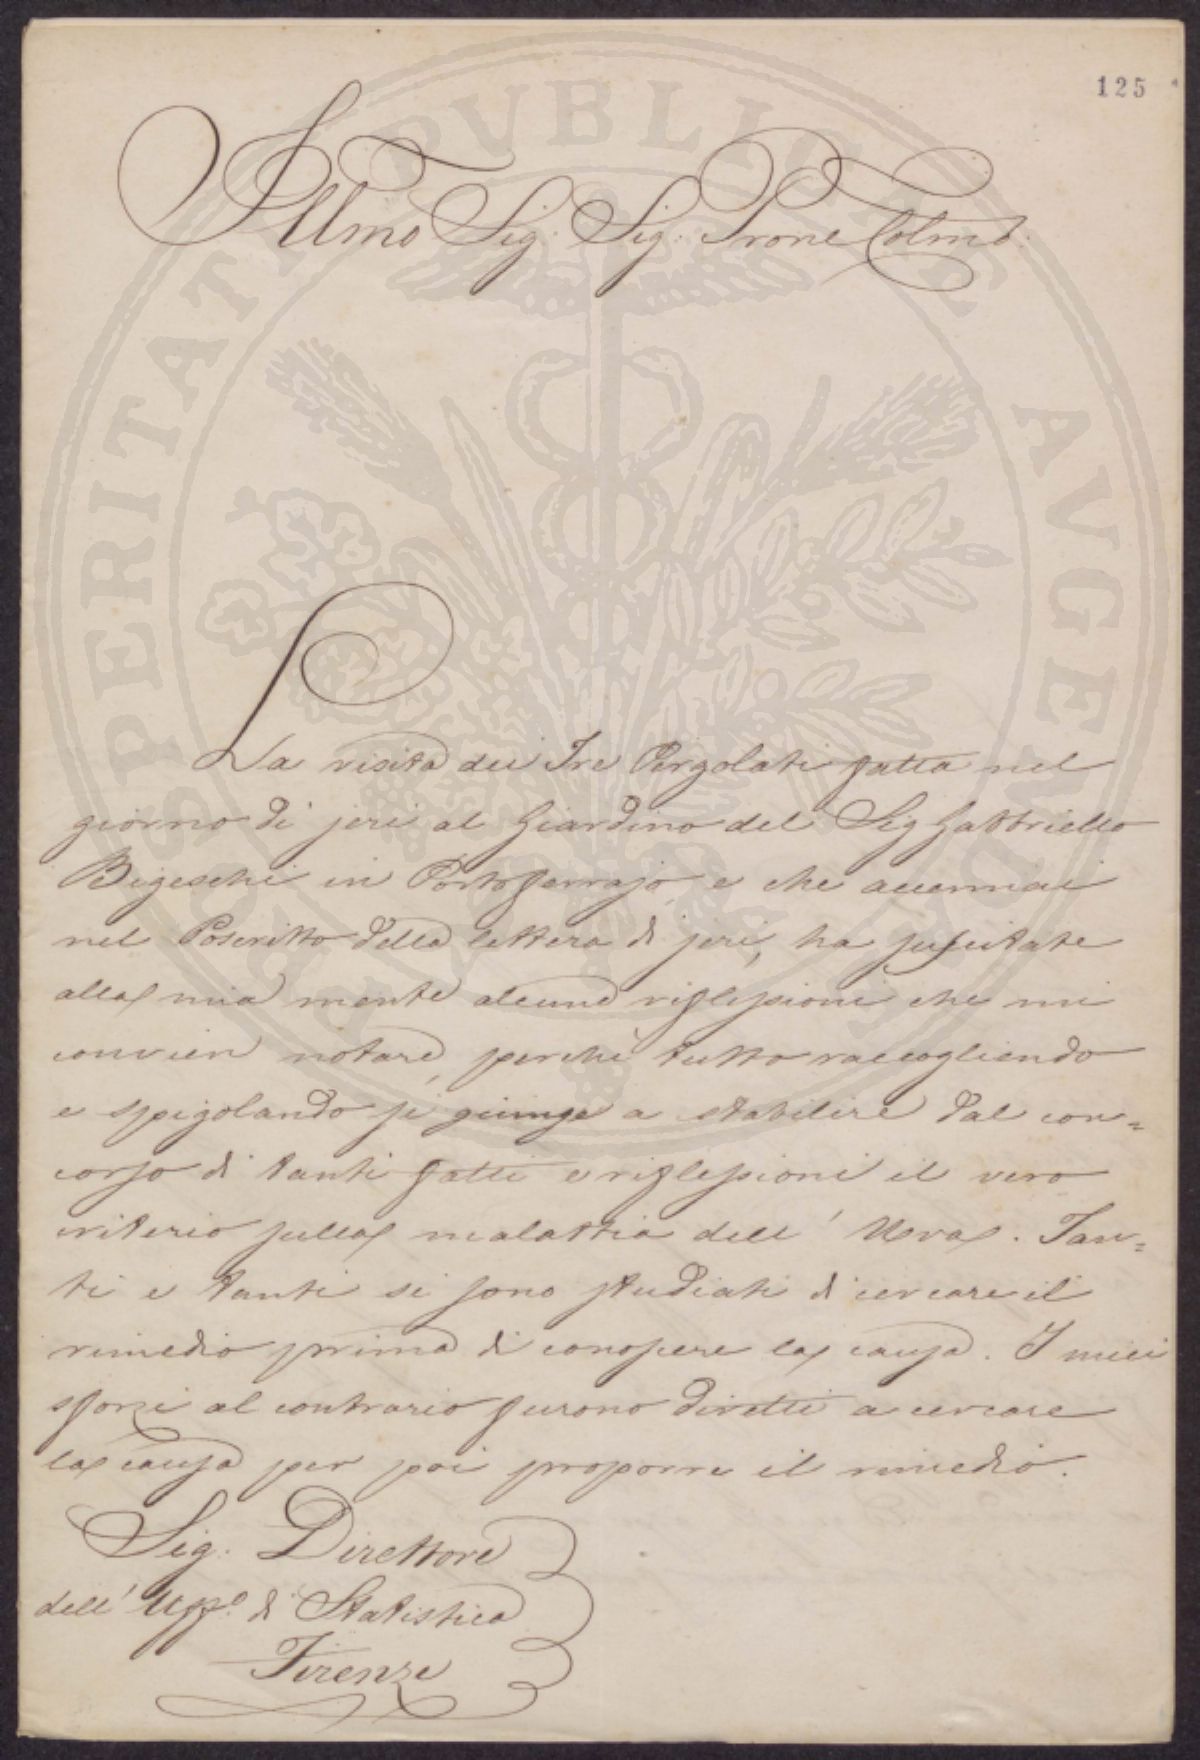 125
Illmo Sig. Sig. Prone Colmo.
La visita dei Tre Pergolati fatta nel
giorno di jeri al Giardino del Sig Gabbriello
Bigeschi in Portoferrajo, e che accennai
nel Poscritto della lettera di jeri, ha suscitate
alla mia mente alcune riflessioni che mi
convien notare, perchè tutto raccogliendo
e spigolando si giunge a stabilire dal con=
corso di tanti fatti e riflessioni il vero
criterio sulla malattia dell' Uva. Tan=
ti e tanti si sono studiati di cercare il
rimedio prima di conoscere la causa. I miei
sforzi al contrario furono diretti a cercare
la causa per poi proporre il rimedio.
Sig. Direttore
dell' Uffo. di Statistica
Firenze
PROSPERITATI PVBLICAE AVGENDAE